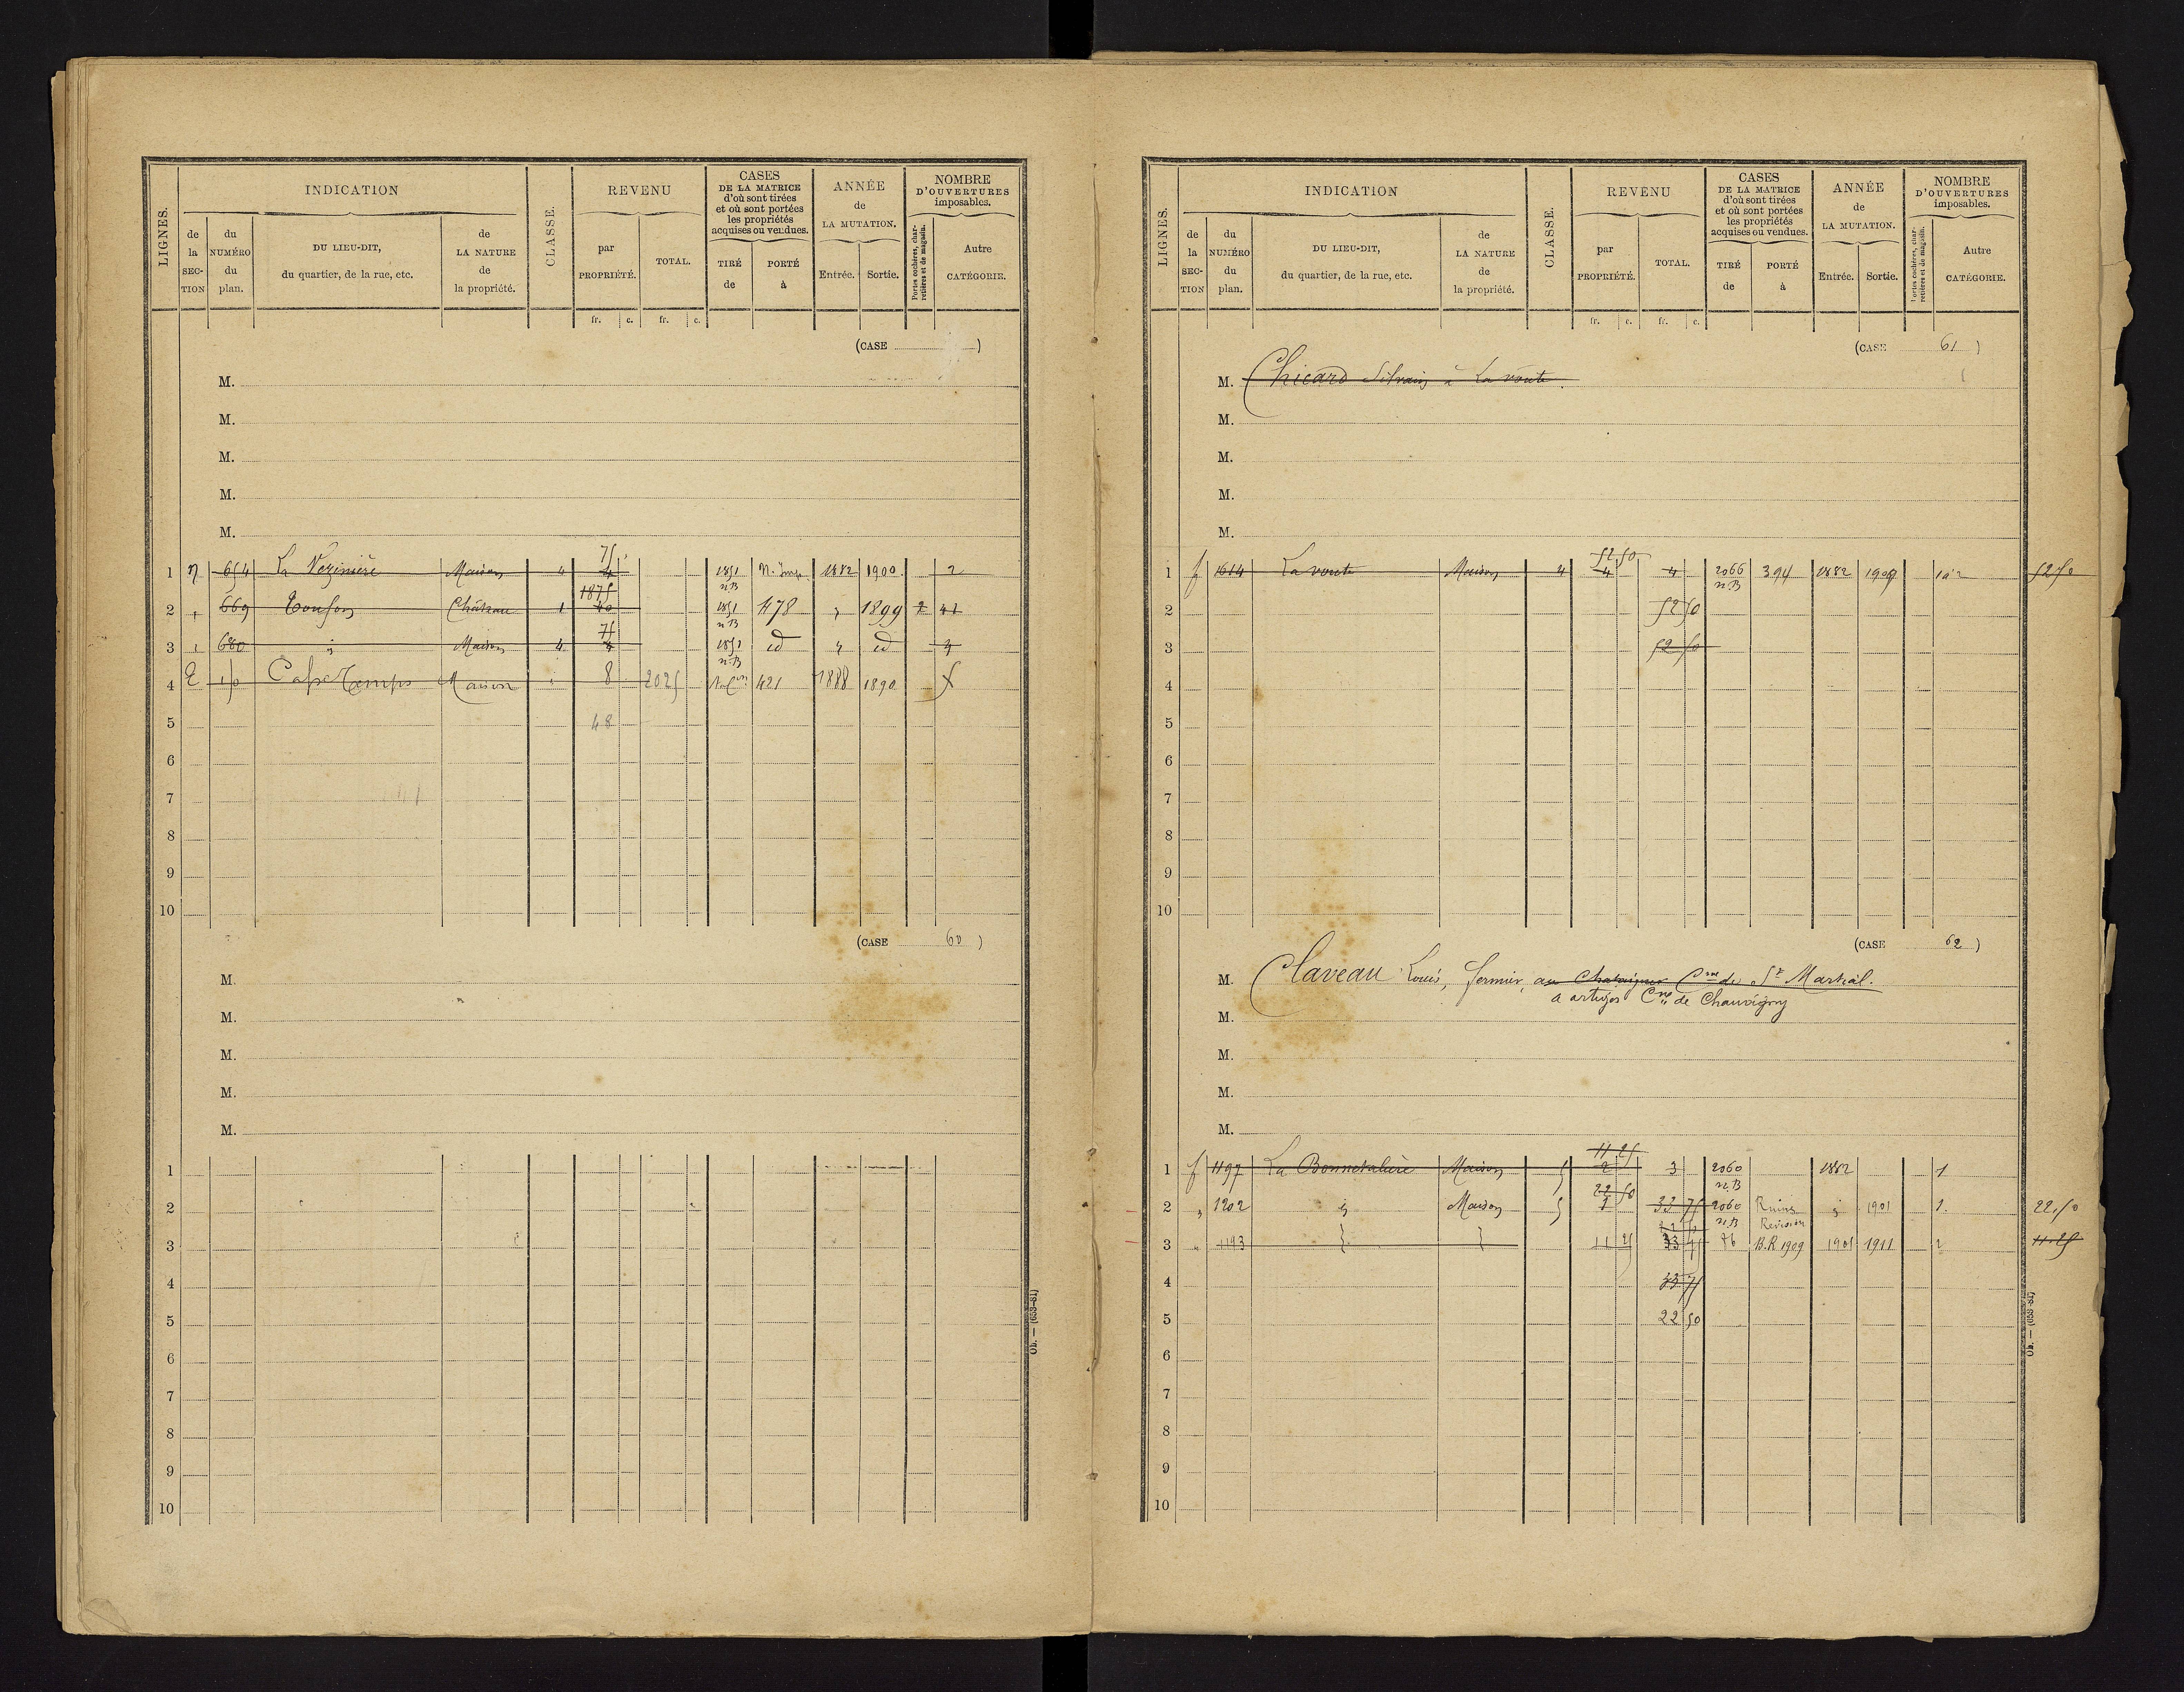 LIGNES.
INDICATION
de la SECTION
du NUMÉRO du plan.
DU LIEU-DIT, du quartier, de la rue, etc.
de LA NATURE de la propriété.
CLASSE.
REVENU
par PROPRIÉTÉ.
TOTAL.
fr. c. fr. c.
CASES DE LA MATRICE d'où sont tirées et où sont portées les propriétés acquises ou vendues.
TIRÉ de
PORTÉ à
ANNÉE de LA MUTATION.
Entrée. Sortie.
NOMBRE D'OUVERTURES imposables.
Portes cochères, charretières et de magasin.
Autre CATÉGORIE.
(CASE )
M.
M.
M.
M.
M.
75
1 654 La Vezinière Maison 4 4 1851 N. Imp. 1882 1900 2
n.B
1875
2 " 669 Toufou Château 1 40 1851 478 " 1899 2 41
n.B
75
3 " 680 " Maison 4 4 1851 id " id
n.B
4 E 150 Maison " 8 2025 421 1888 1890
5 48
6
7
8
9
10
(CASE 60 )
M.
M.
M.
M.
M.
1
2
3
4
5
6
7
8
9
10
Ob. — (653-81)
LIGNES.
INDICATION
de la SECTION
du NUMÉRO du plan.
DU LIEU-DIT, du quartier, de la rue, etc.
de LA NATURE de la propriété.
CLASSE.
REVENU
par PROPRIÉTÉ.
TOTAL.
fr. c. fr. c.
CASES DE LA MATRICE d'où sont tirées et où sont portées les propriétés acquises ou vendues.
TIRÉ de
PORTÉ à
ANNÉE de LA MUTATION.
Entrée. Sortie.
NOMBRE D'OUVERTURES imposables.
Portes cochères, charretières et de magasin.
Autre CATÉGORIE.
(CASE 61 )
M. Chicard Silvain à La voute
M.
M.
M.
M.
52 50
1 f 1614 La voute Maison 4 4 4 2066 394 1882 1909 52 50
n.B
2 52 50
3 52 50
4
5
6
7
8
9
10
(CASE 62 )
M. Claveau Louis, fermier, au Chataigner Cne de St Martial.
à artiges Cne de Chauvigny
M.
M.
M.
M.
11 25
1 f 1197 La Bonnetalière Maison 5 2 3 2060 1882 1
n.B
22 50
2 " 1202 " Maison 5 1 33 75 2060 Ruines " 1901 1. 22.50
n.B Revision
3 " 1193 11 25 33 75 B.R 1909 1901 1911 2 11.25
4 33 75
5 22 50
6
7
8
9
10
Ob. — (653-81)